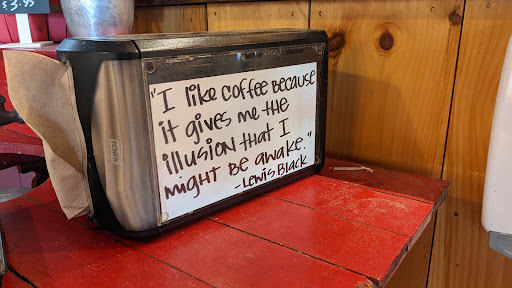 $3.95
"I like coffee because
it gives me the
illusion that I
might be awake."
-Lewis Black
TORK